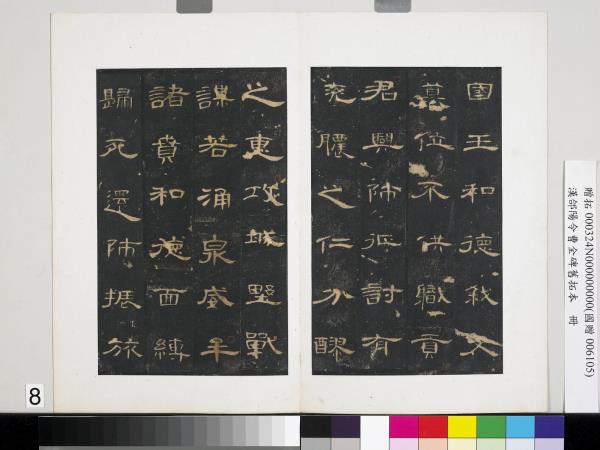 國王和德弒父
篡位不供職貢
君興師征討有
兗膿之仁分醪
之惠攻城野戰
謀若涌泉威牟
諸賁和德面縛
歸死還師振旅
贈拓 000324N000000000(國贈 006105)
漢郃陽令曹全碑舊拓本 冊
8